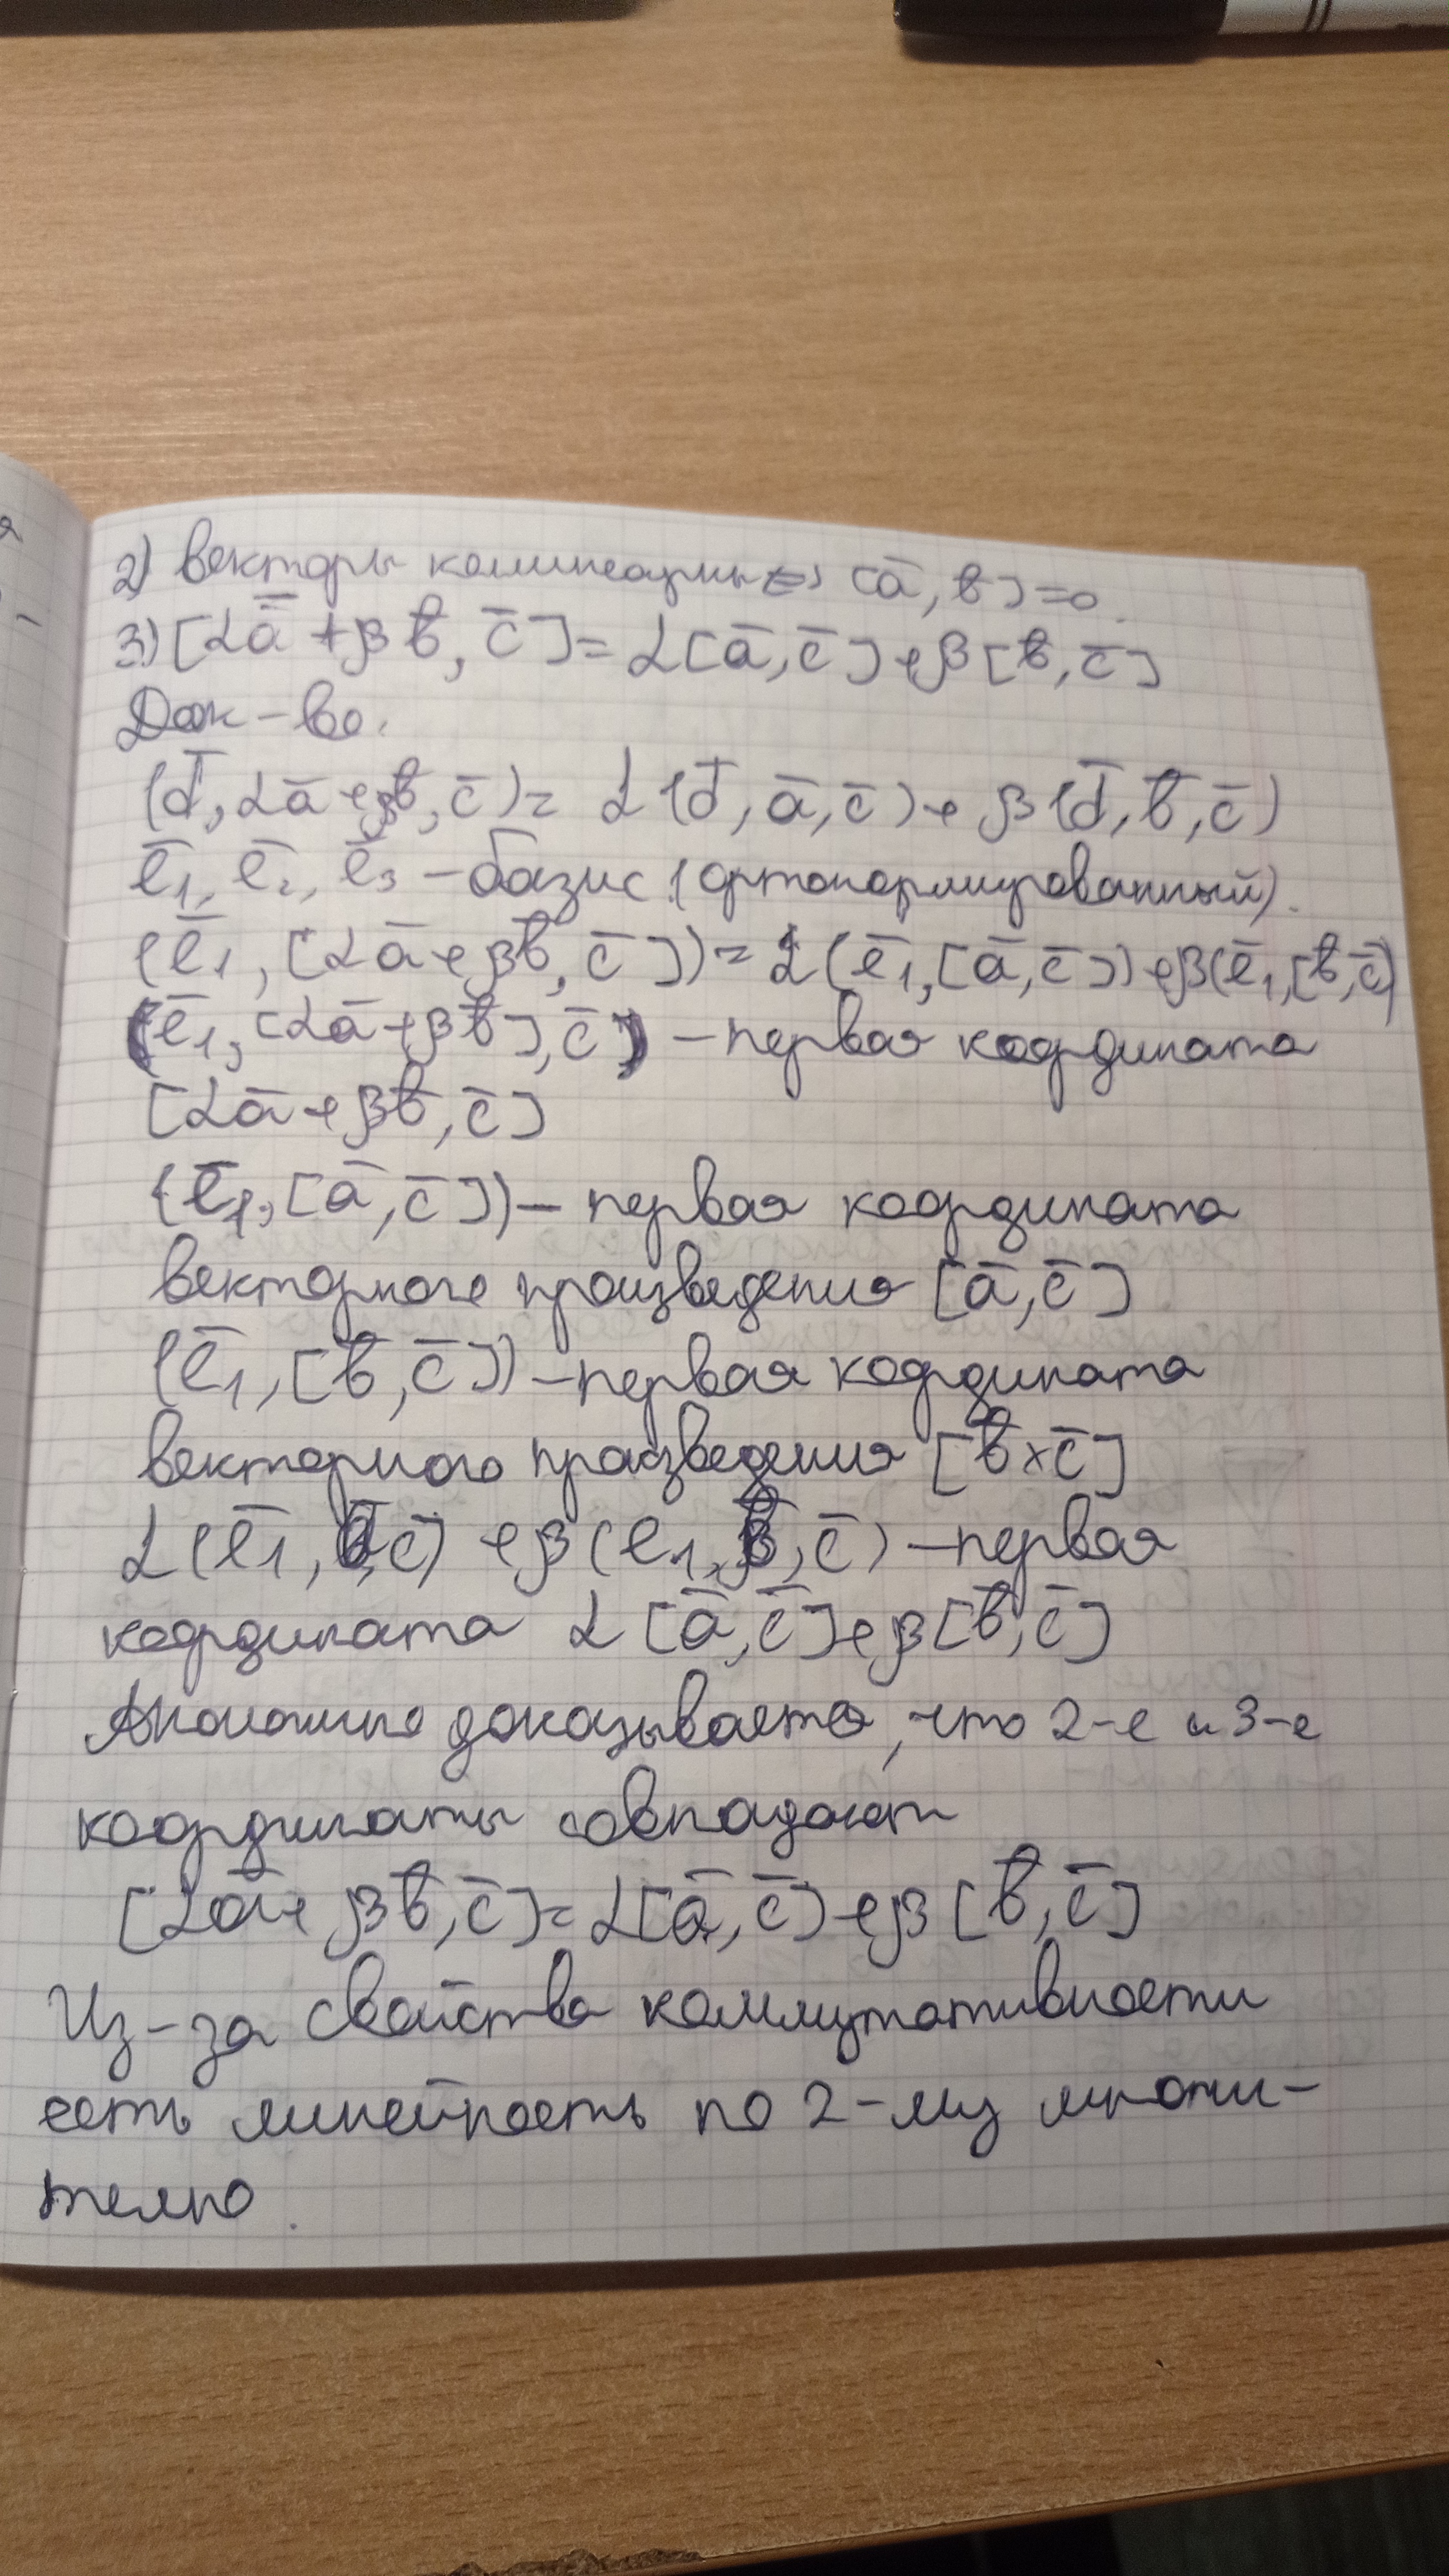 2) векторы коллинеарны <=> [ā, b̄] = 0
3) [αā + βb̄, c̄] = α[ā, c̄] + β[b̄, c̄]
Док-во.
(d̄, αā + βb̄, c̄) = α(d̄, ā, c̄) + β(d̄, b̄, c̄)
ē₁, ē₂, ē₃ – базис (ортонормированный).
(ē₁, [αā + βb̄, c̄]) = α(ē₁, [ā, c̄]) + β(ē₁, [b̄, c̄)
(ē₁, [αā + βb̄], c̄) – первая координата
[αā + βb̄, c̄]
(ē₁, [ā, c̄]) – первая координата
векторного произведения [ā, c̄]
(ē₁, [b̄, c̄]) – первая координата
векторного произведения [b̄ × c̄]
α(ē₁, ā, c̄) + β(ē₁, b̄, c̄) – первая
координата α[ā, c̄] + β[b̄, c̄]
Аналогично доказывается, что 2-е и 3-е
координаты совпадают
[αā + βb̄, c̄] = α[ā, c̄] + β[b̄, c̄]
Из-за свойства коммутативности
есть линейность по 2-му множи-
телю.